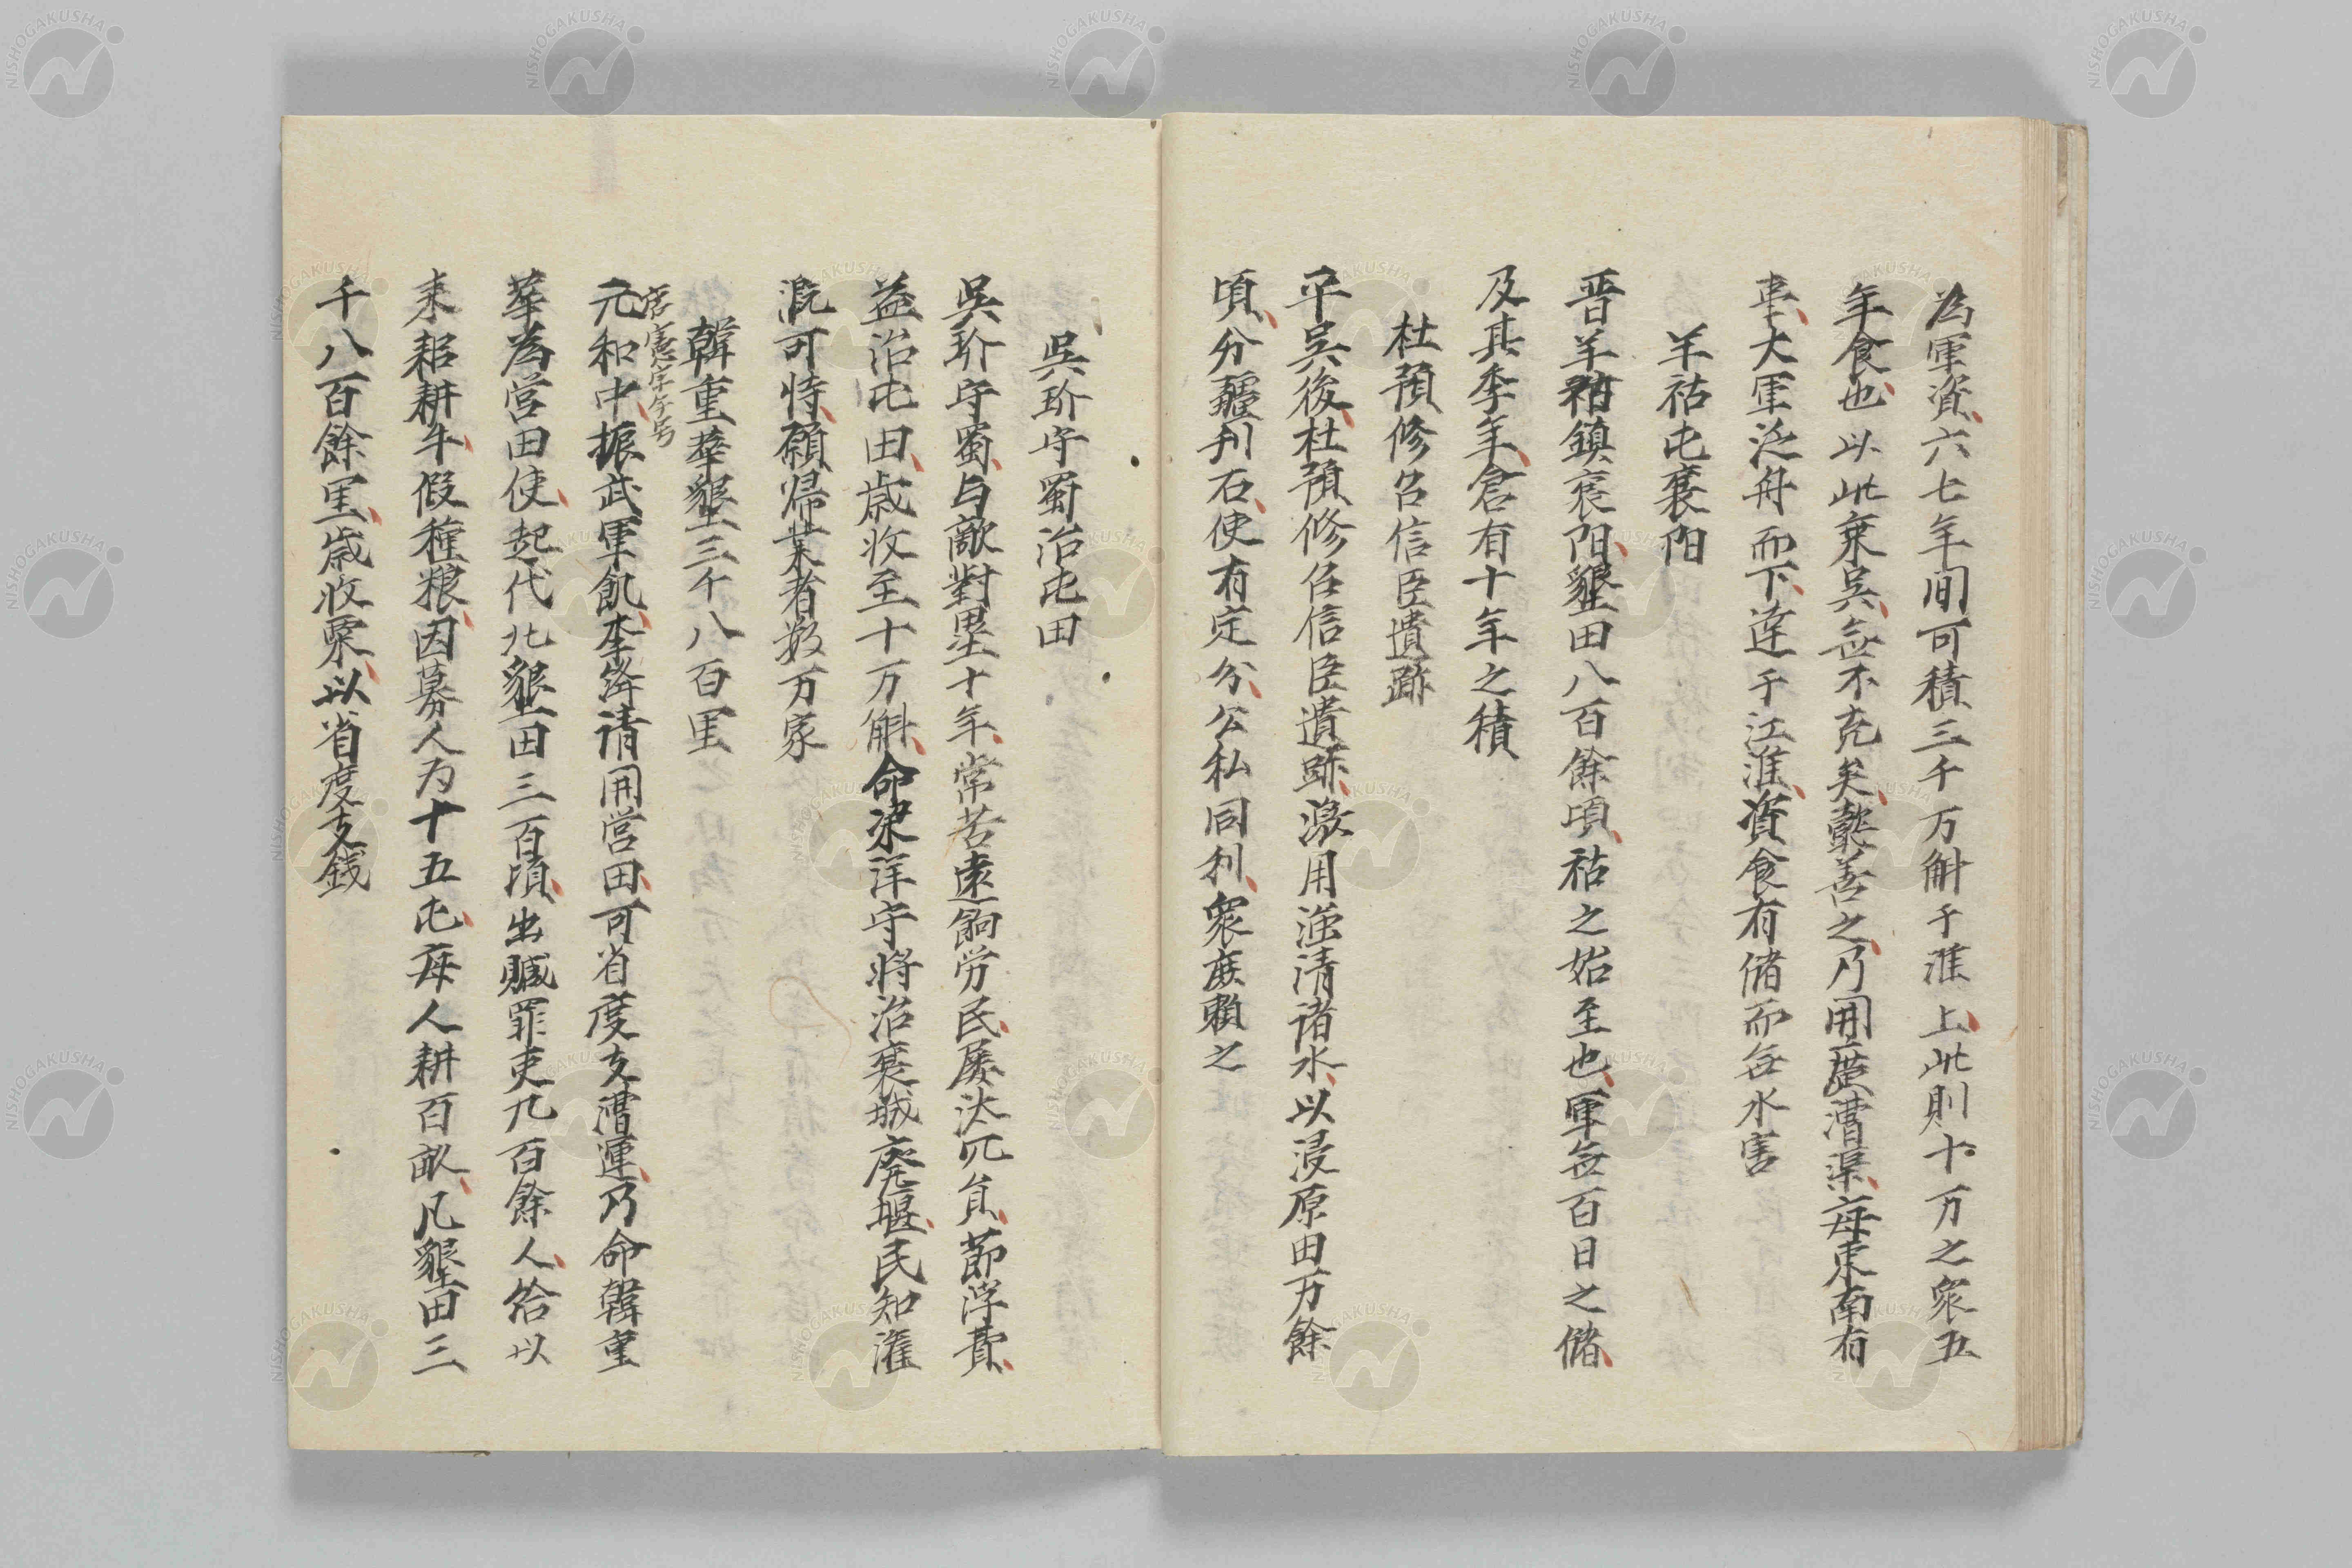 為軍資六七年间可積三千万斛于淮上此則十万之衆五
年食也以此乗吳無不克矣懿善之乃開廣漕渠每東南有
事大軍泛舟而下達于江淮資食有儲而無水害
羊祜屯襄阳
晋羊祜鎮襄阳墾田八百餘頃祜之始至也軍無百日之儲
及其季年倉有十年之積
杜預修召信臣遺跡
平吳後杜預修召信臣遺跡激用滍淯諸水以浸原田万餘
頃分疆刊石使有定分公私同利衆庶賴之
吳玠守蜀治屯田
吳玠守蜀与敵對壘十年常苦遠餉労民屡汰冗員節浮費
益治屯田歳收至十万斛命梁洋守将治褒城廃堰民知灌
溉可恃願帰業者数万家
韓重華墾三千八百里
唐憲宗年号
元和中振武軍飢李絳請開営田可省度支漕運乃命韓重
華為営田使起代北墾田三百頃出贓罪吏九百餘人给以
耒耜耕牛假種粮因募人为十五屯每人耕百畝凡墾田三
千八百餘里歳收粟以省度支銭
NISHOGAKUSHA